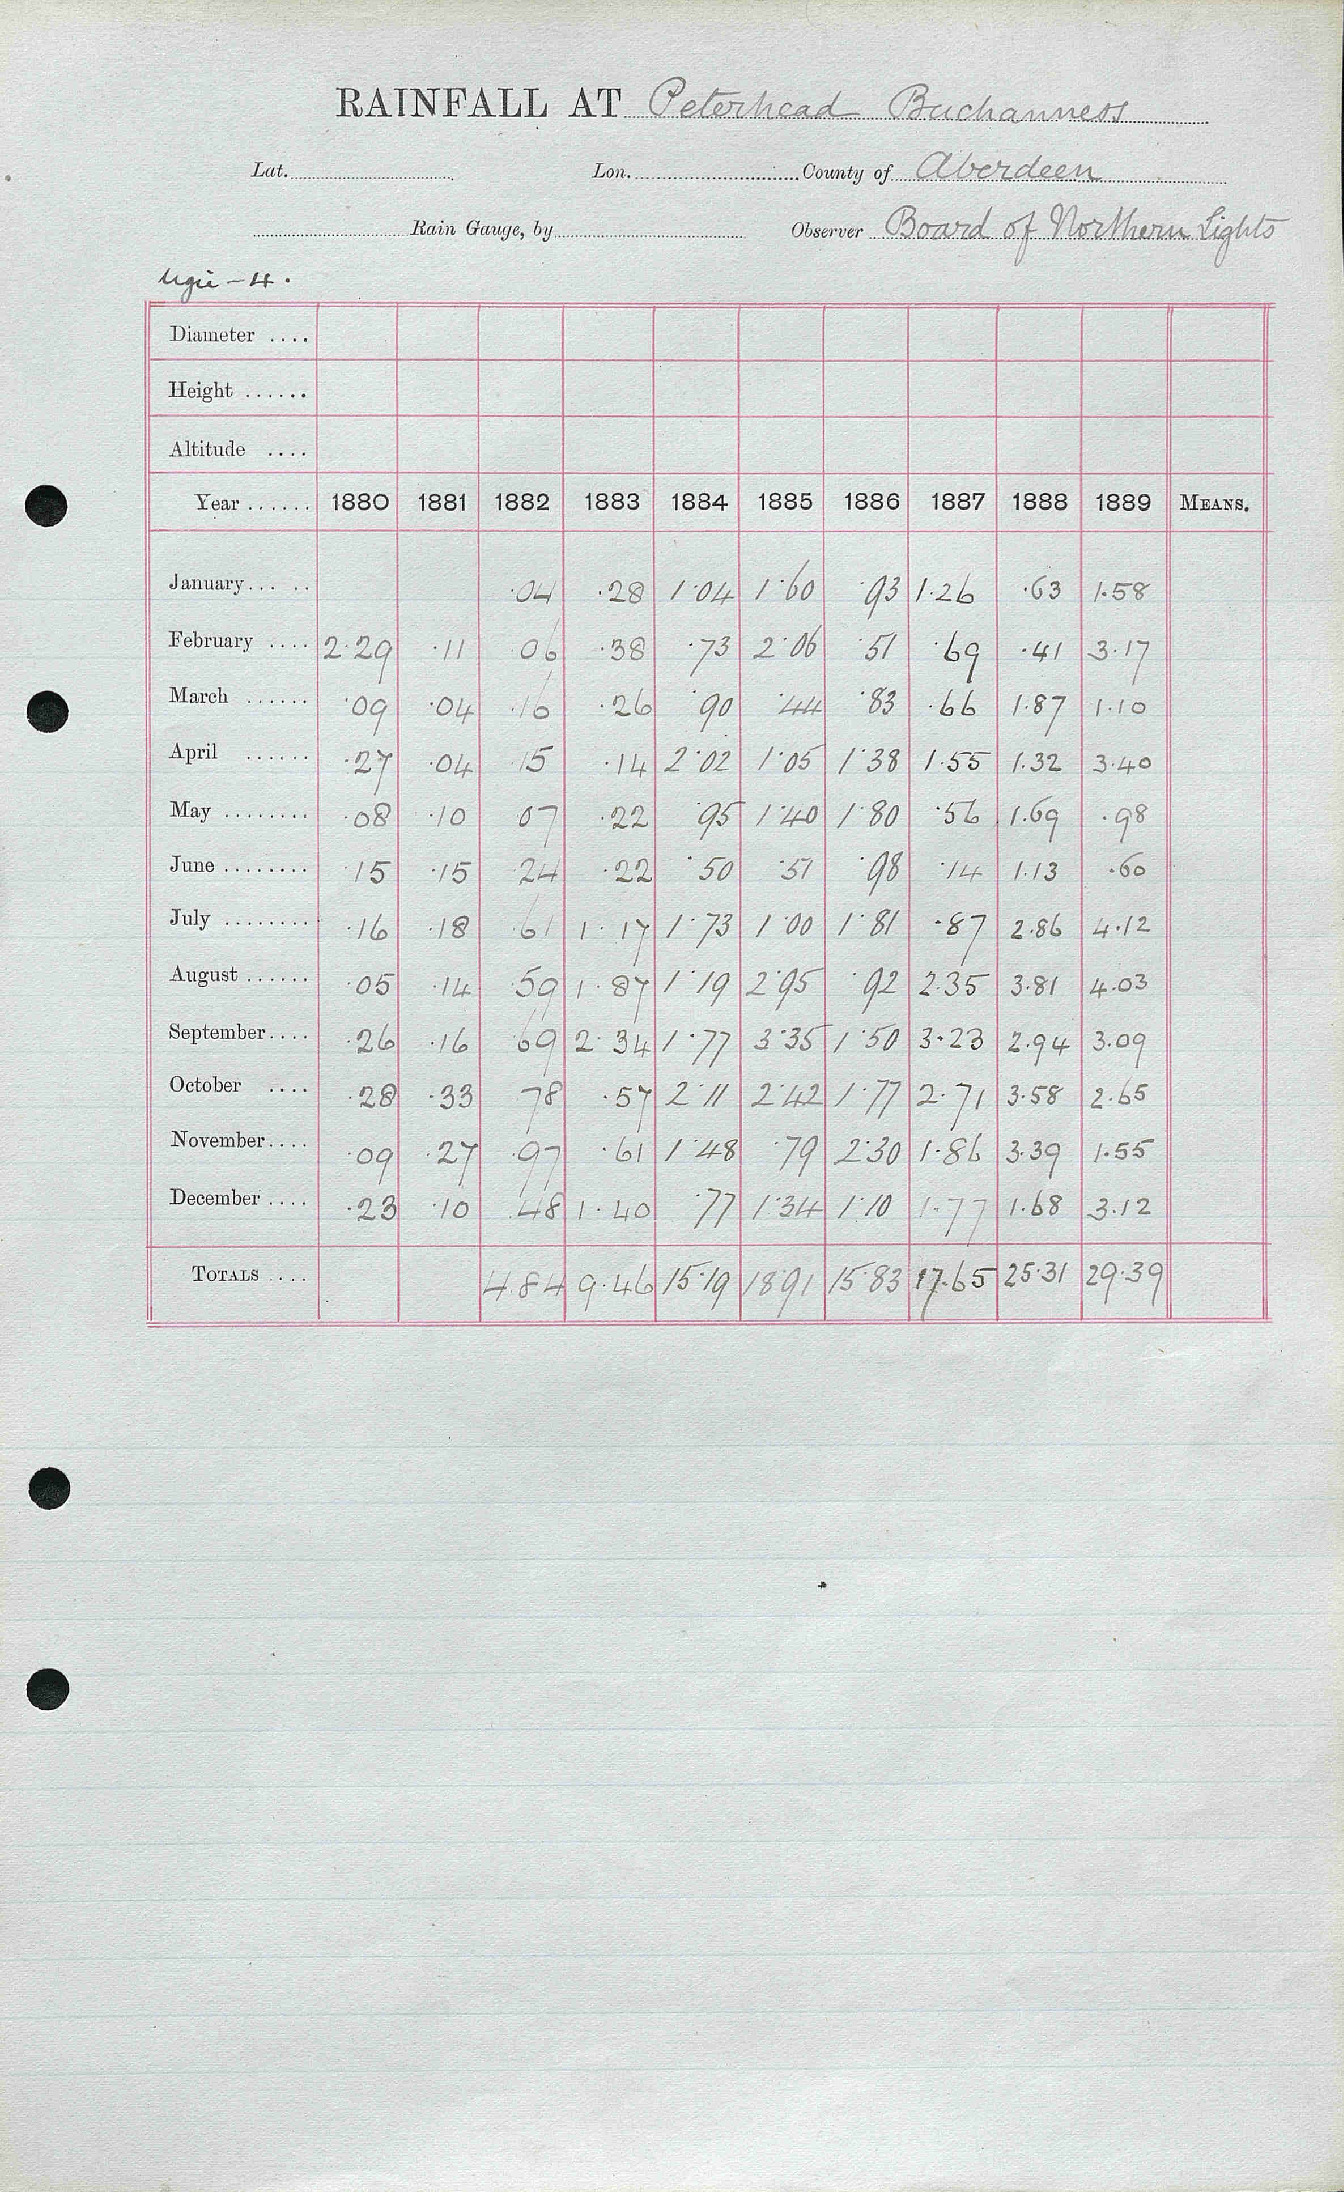 RAINFALL AT Peterhead Buchanness
Lat. Lon. County of Aberdeen
Rain Gauge, by Observer Board of Northern Lights
Ugie - 4.
Diameter ....
Height ......
Altitude ....
Year ...... 1880 1881 1882 1883 1884 1885 1886 1887 1888 1889 MEANS.
January ... .. ·04 ·28 1·04 1·60 ·93 1·26 ·63 1·58
February .... 2·29 ·11 ·06 ·38 ·73 2·06 ·51 ·69 ·41 3·17
March ...... ·09 ·04 ·16 ·26 ·90 ·44 ·83 ·66 1·87 1·10
April ...... ·27 ·04 ·15 ·14 2·02 1·05 1·38 1·55 1·32 3·40
May ........ ·08 ·10 ·07 ·22 ·95 1·40 1·80 ·56 1·69 ·98
June ........ ·15 ·15 ·24 ·22 ·50 ·51 ·98 ·14 1·13 ·60
July ......... ·16 ·18 ·61 1·17 1·73 1·00 1·81 ·87 2·86 4·12
August ...... ·05 ·14 ·59 1·87 1·19 2·95 ·92 2·35 3·81 4·03
September .... ·26 ·16 ·69 2·34 1·77 3·35 1·50 3·23 2·94 3·09
October .... ·28 ·33 ·78 ·57 2·11 2·42 1·77 2·71 3·58 2·65
November .... ·09 ·27 ·97 ·61 1·48 ·79 2·30 1·86 3·39 1·55
December .... ·23 ·10 ·48 1·40 ·77 1·34 1·10 1·77 1·68 3·12
TOTALS .... 4·84 9·46 15·19 18·91 15·83 17·65 25·31 29·39